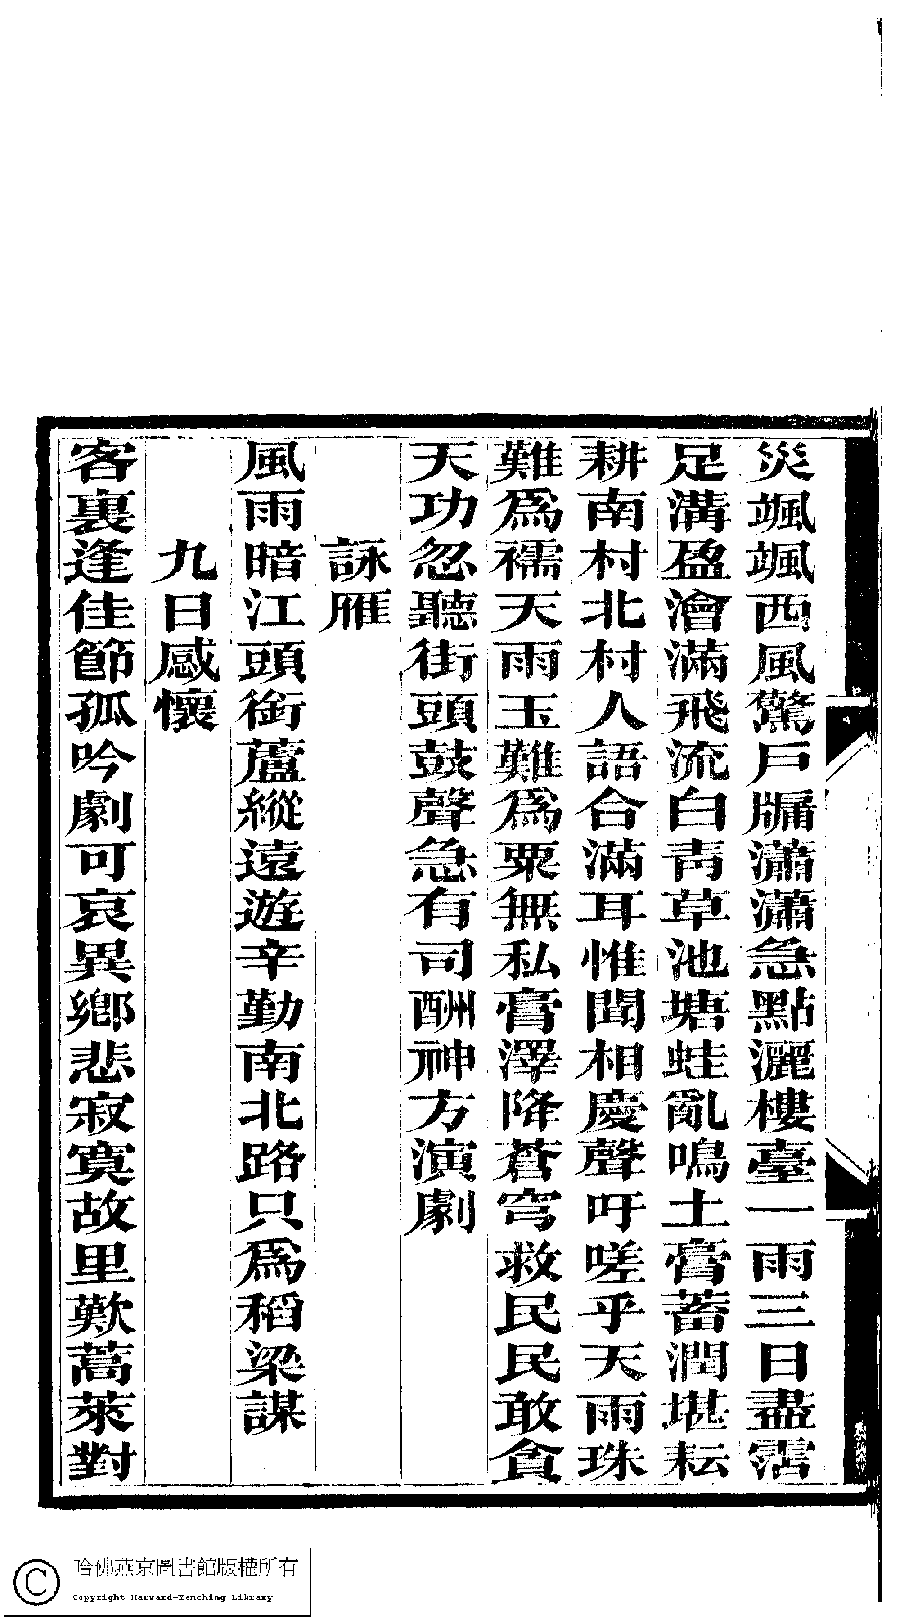 災颯颯西風驚戶牖瀟瀟急點灑樓臺一雨三日盡霑
足溝盈澮滿飛流白靑草池塘蛙亂鳴土膏蓄潤堪耘
耕南村北村人語合滿耳惟聞相慶聲吁嗟乎天雨珠
難爲襦天雨玉難爲粟無私膏澤降蒼穹救民民敢貪
天功忽聽街頭鼓聲急有司酬神方演劇
詠雁
風雨暗江頭銜蘆縱遠遊辛勤南北路只爲稻粱謀
九日感懷
客裏逢佳節孤吟劇可哀異鄉悲寂寞故里歎蒿萊對
哈佛燕京圖書館版權所有
Copyright Harvard-Yenching Library